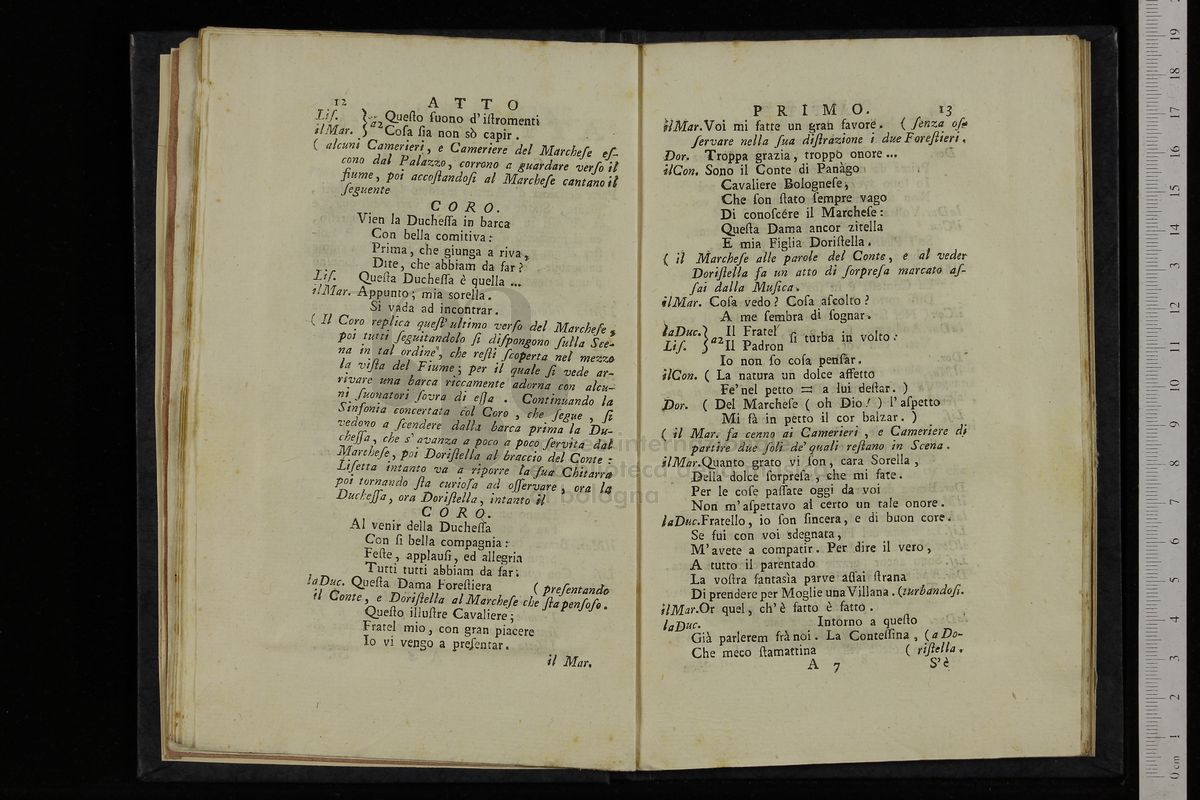 12 ATTO
Lis. } a2 Questo suono d'istromenti
il Mar. } Cosa sia non sò capir.
( alcuni Camerieri, e Cameriere del Marchese es-
cono dal Palazzo, corrono a guardare verso il
fiume, poi accostandosi al Marchese cantano il
seguente
CORO.
Vien la Duchessa in barca
Con bella comitiva:
Prima, che giunga a riva,
Dite, che abbiam da far?
Lis. Questa Duchessa è quella ...
il Mar. Appunto; mia sorella.
Si vada ad incontrar.
( Il Coro replica quest' ultimo verso del Marchese,
poi tutti seguitandolo si dispongono sulla Sce-
na in tal ordine, che resti scoperta nel mezzo
la vista del Fiume; per il quale si vede ar-
rivare una barca riccamente adorna con alcu-
ni suonatori sovra di essa. Continuando la
Sinfonia concertata col Coro, che segue, si
vedono a scendere dalla barca prima la Du-
chessa, che s' avanza a poco a poco servita dal
Marchese, poi Doristella al braccio del Conte:
Lisetta intanto va a riporre la sua Chitarra
poi tornando sta curiosa ad osservare, ora la
Duchessa, ora Doristella, intanto il
CORO.
Al venir della Duchessa
Con sì bella compagnia:
Feste, applausi, ed allegria
Tutti tutti abbiam da far.
la Duc. Questa Dama Forestiera ( presentando
il Conte, e Doristella al Marchese che sta pensoso.
Questo illustre Cavaliere;
Fratel mio, con gran piacere
Io vi vengo a presentar.
il Mar.
PRIMO. 13
il Mar. Voi mi fatte un gran favore. ( senza os-
servare nella sua distrazione i due Forestieri.
Dor. Troppa grazia, troppo onore ...
il Con. Sono il Conte di Panàgo
Cavaliere Bolognese,
Che son stato sempre vago
Di conoscére il Marchese:
Questa Dama ancor zitella
E mia Figlia Doristella.
( il Marchese alle parole del Conte, e al veder
Doristella fa un atto di sorpresa marcato as-
sai dalla Musica.
il Mar. Cosa vedo? Cosa ascolto?
A me sembra di sognar.
la Duc. } a2 Il Fratel si turba in volto:
Lis. } Il Padron
Io non so cosa pensar.
il Con. ( La natura un dolce affetto
Fe' nel petto = a lui destar. )
Dor. ( Del Marchese ( oh Dio! ) l'aspetto
Mi fà in petto il cor balzar. )
( il Mar. fa cenno ai Camerieri, e Cameriere di
partire due soli de' quali restano in Scena.
il Mar. Quanto grato vi son, cara Sorella,
Della dolce sorpresa, che mi fate.
Per le cose passate oggi da voi
Non m'aspettavo al certo un tale onore.
la Duc. Fratello, io son sincera, e di buon core.
Se fui con voi sdegnata,
M'avete a compatir. Per dire il vero,
A tutto il parentado
La vostra fantasìa parve assai strana
Di prendere per Moglie una Villana. (turbandosi.
il Mar. Or quel, ch'è fatto è fatto.
la Duc. Intorno a questo
Già parlerem frà noi. La Contessina, (a Do-
Che meco stamattina ( ristella.
A 7 S'è